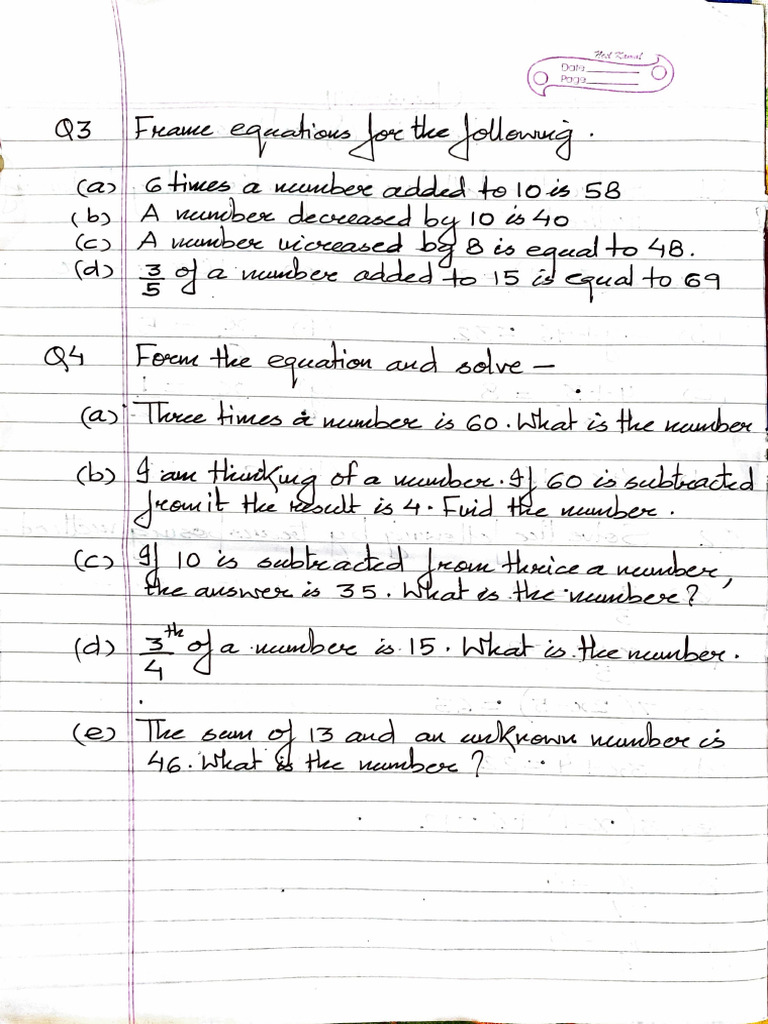 Date
Page
Q3 Frame equations for the following.
(a) 6 times a number added to 10 is 58
(b) A number decreased by 10 is 40
(c) A number increased by 8 is equal to 48.
(d) 3/5 of a number added to 15 is equal to 69
Q4 Form the equation and solve –
(a) Three times a number is 60. What is the number
(b) I am thinking of a number. If 60 is subtracted
from it the result is 4. Find the number.
(c) If 10 is subtracted from thrice a number,
the answer is 35. What is the number?
(d) 3/4 th of a number is 15. What is the number.
(e) The sum of 13 and an unknown number is
46. What is the number?